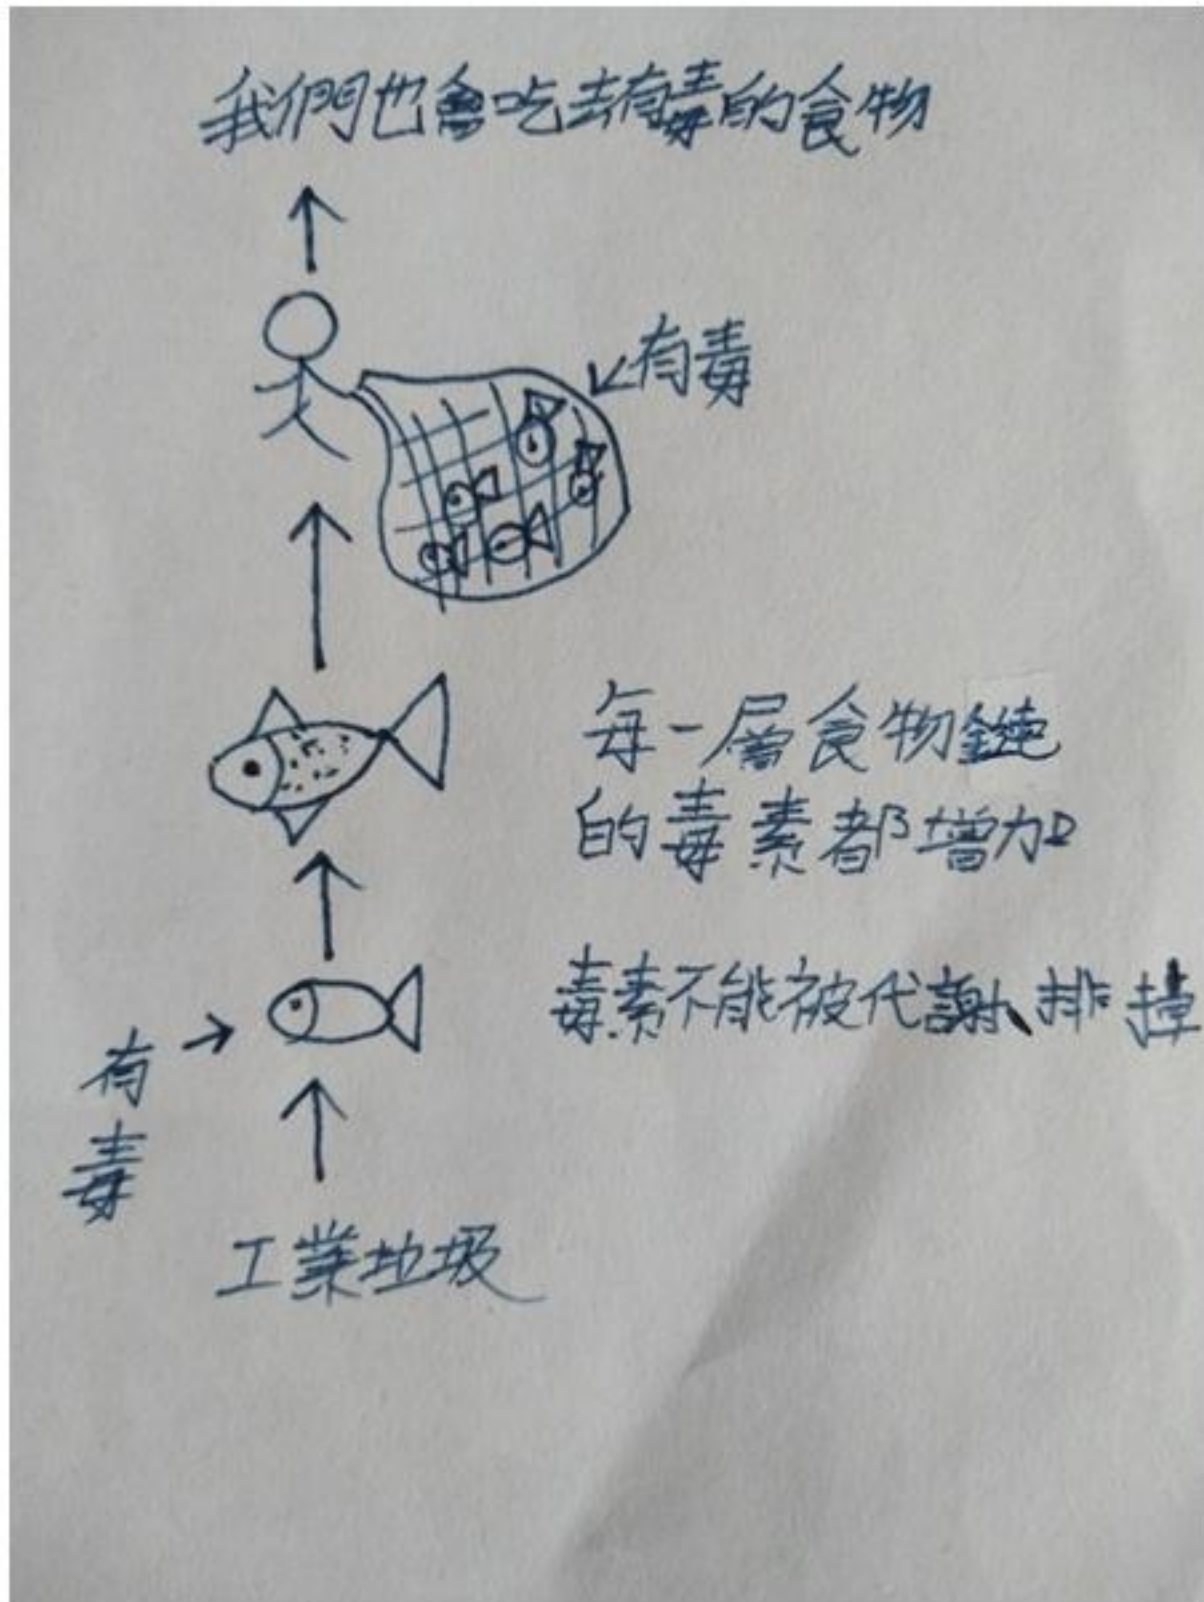 我們也會吃去有毒的食物
有毒
每一層食物鏈
的毒素都增加
毒素不能被代謝、排掉
有毒
工業垃圾